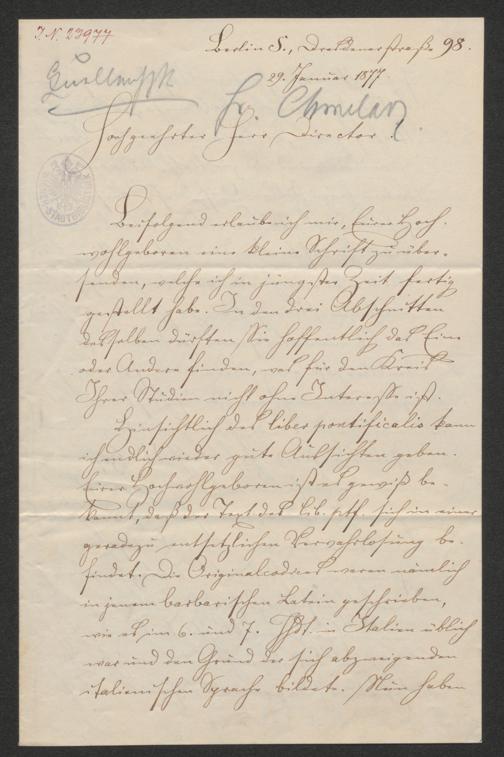 J.N. 23977
Berlin S., Dresdenerstraße 98.
29. Januar 1877
Hochgeehrter Herr Director!
Beifolgend erlaube ich mir, Eurer Hoch-
wohlgeboren eine kleine Schrift zu über-
senden, welche ich in jüngster Zeit fertig
gestellt habe. In den drei Abschnitten
desselben dürften Sie hoffentlich das Eine
oder Andere finden, was für den Kreis
Ihrer Studien nicht ohne Interesse ist.
Hinsichtlich des liber pontificalis kann
ich endlich wieder gute Aussichten geben.
Eurer Hochwohlgeboren ist es gewiß be-
kannt, daß der Text des lib. ptf. sich in einer
geradezu entsetzlichen Verwahrlosung be-
findet. Die Originalcodices waren nämlich
in jenem barbarischen Latein geschrieben,
wie es im 6. und 7. Jhdt. in Italien üblich
war und den Grund der sich abzweigenden
italienischen Sprache bildete. Nun haben